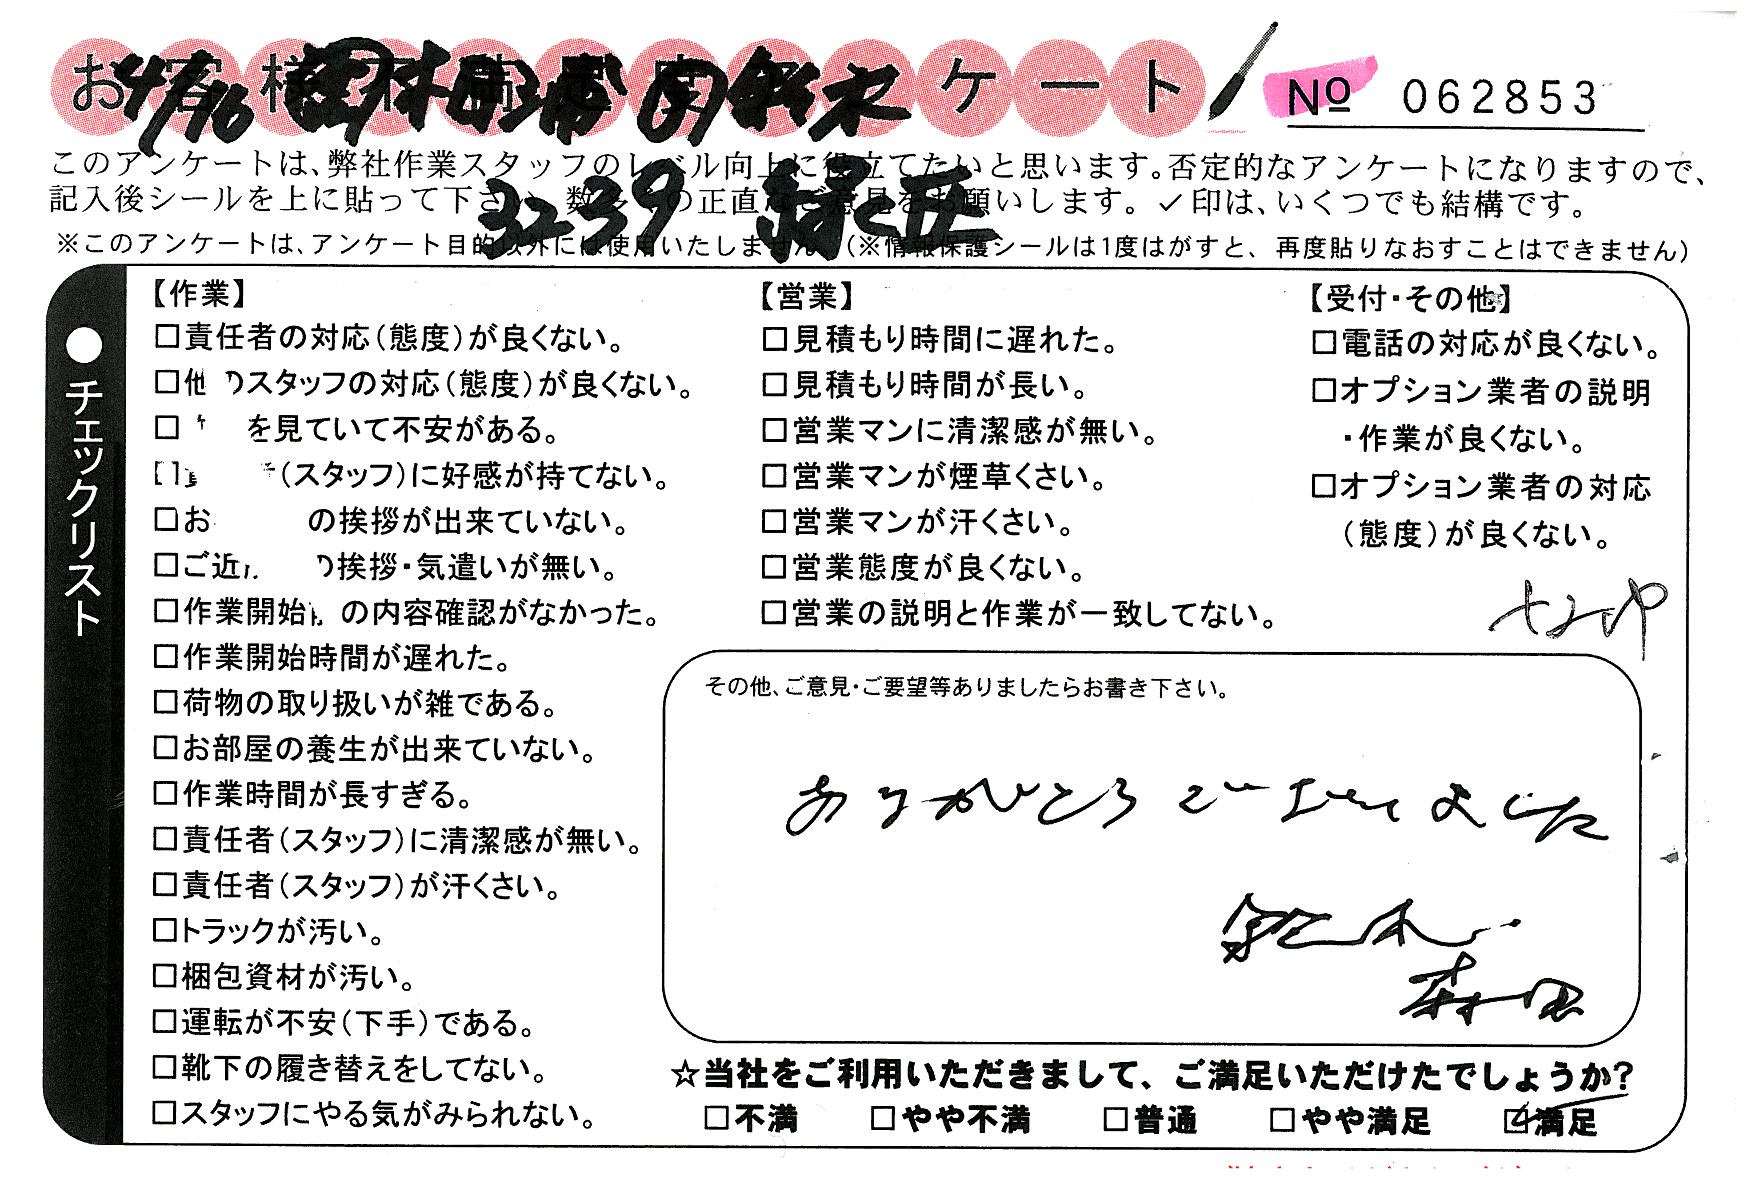 お客様不満足度アンケート
4/16
No 062853
このアンケートは、弊社作業スタッフのレベル向上に役立てたいと思います。否定的なアンケートになりますので、
記入後シールを上に貼って下さい。数多くの正直なご意見をお願いします。✓印は、いくつでも結構です。
3239 緑区
※このアンケートは、アンケート目的以外には使用いたしません。(※情報保護シールは1度はがすと、再度貼りなおすことはできません)
●チェックリスト
【作業】
□責任者の対応(態度)が良くない。
□他のスタッフの対応(態度)が良くない。
□ を見ていて不安がある。
□ (スタッフ)に好感が持てない。
□お の挨拶が出来ていない。
□ご近 の挨拶・気遣いが無い。
□作業開始 の内容確認がなかった。
□作業開始時間が遅れた。
□荷物の取り扱いが雑である。
□お部屋の養生が出来ていない。
□作業時間が長すぎる。
□責任者(スタッフ)に清潔感が無い。
□責任者(スタッフ)が汗くさい。
□トラックが汚い。
□梱包資材が汚い。
□運転が不安(下手)である。
□靴下の履き替えをしてない。
□スタッフにやる気がみられない。
【営業】
□見積もり時間に遅れた。
□見積もり時間が長い。
□営業マンに清潔感が無い。
□営業マンが煙草くさい。
□営業マンが汗くさい。
□営業態度が良くない。
□営業の説明と作業が一致してない。
【受付・その他】
□電話の対応が良くない。
□オプション業者の説明
・作業が良くない。
□オプション業者の対応
(態度)が良くない。
その他、ご意見・ご要望等ありましたらお書き下さい。
ありがとうございました
鈴木
森田
☆当社をご利用いただきまして、ご満足いただけたでしょうか?
□不満 □やや不満 □普通 □やや満足 ☑満足